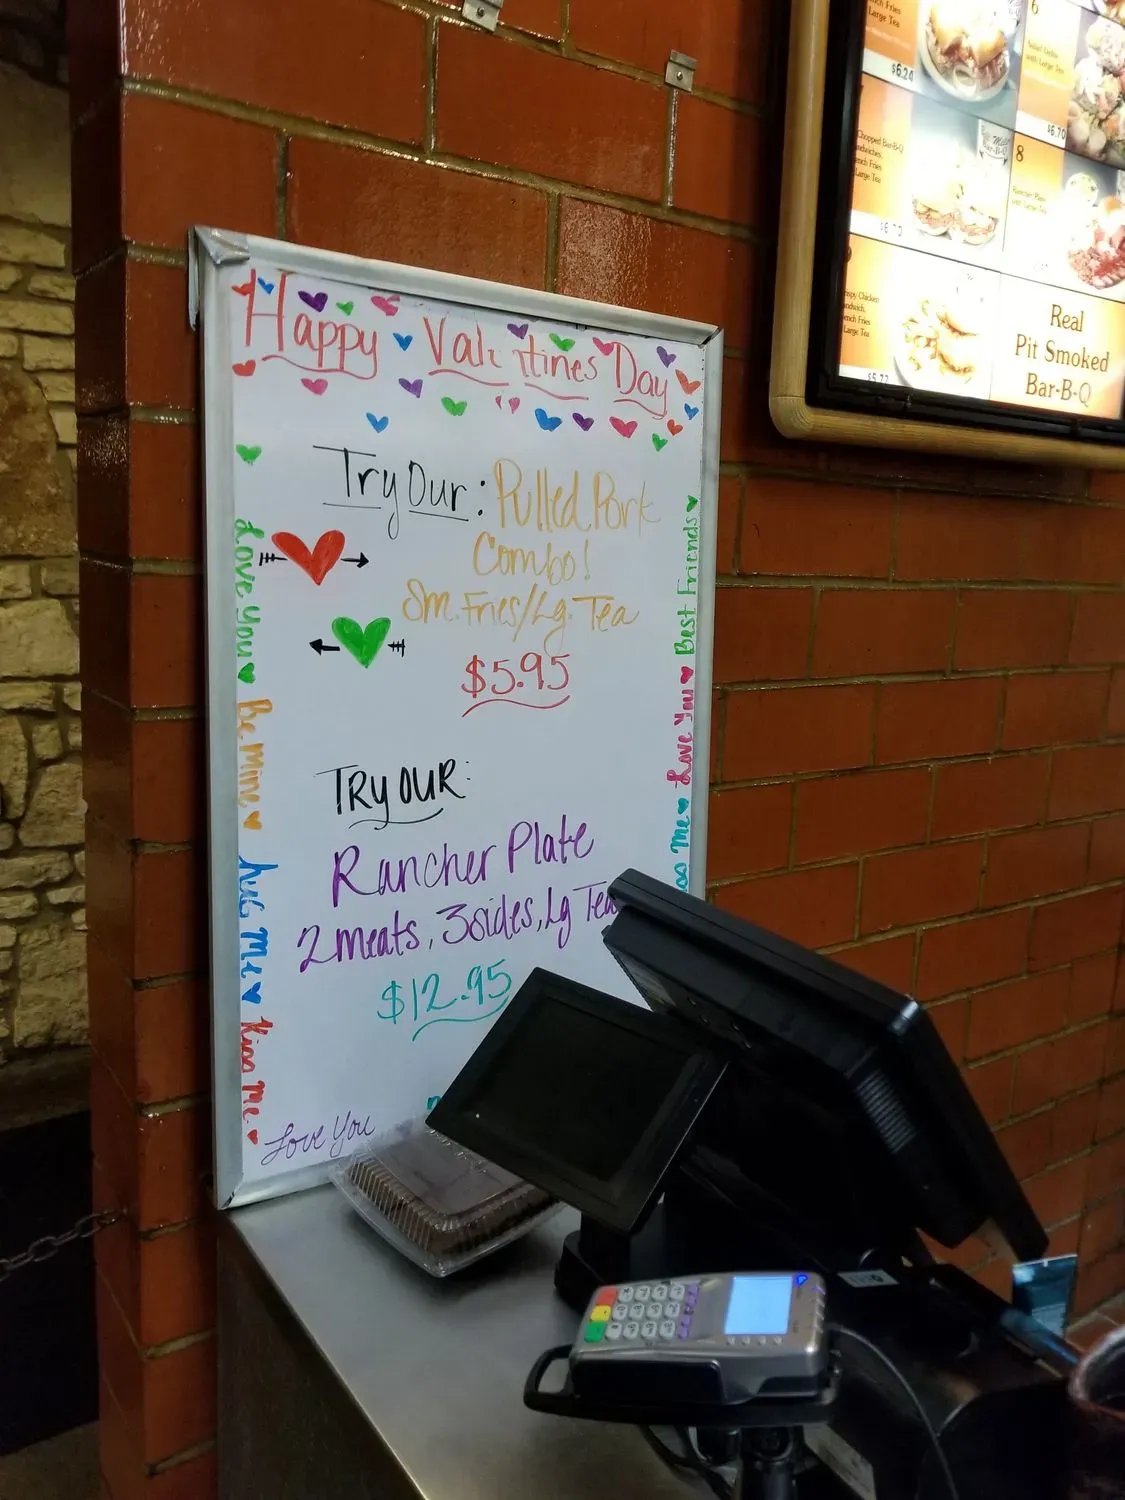 Happy Valentines Day
Try Our: Pulled Pork
Combo!
Sm. Fries/Lg. Tea
$5.95
TRY OUR:
Rancher Plate
2 meats, 3 sides, Lg Tea
$12.95
Love You
Love You
Be Mine
Hug Me
Kiss Me
Best Friends
Love You
Me
French Fries
Large Tea
$6.24
6
with Large Tea
$6.70
Chopped Bar-B-Q
Sandwiches,
French Fries
Large Tea
8
Rancher Plate
with Large Tea
Crispy Chicken
Sandwich,
French Fries
Large Tea
$5.77
Real
Pit Smoked
Bar-B-Q